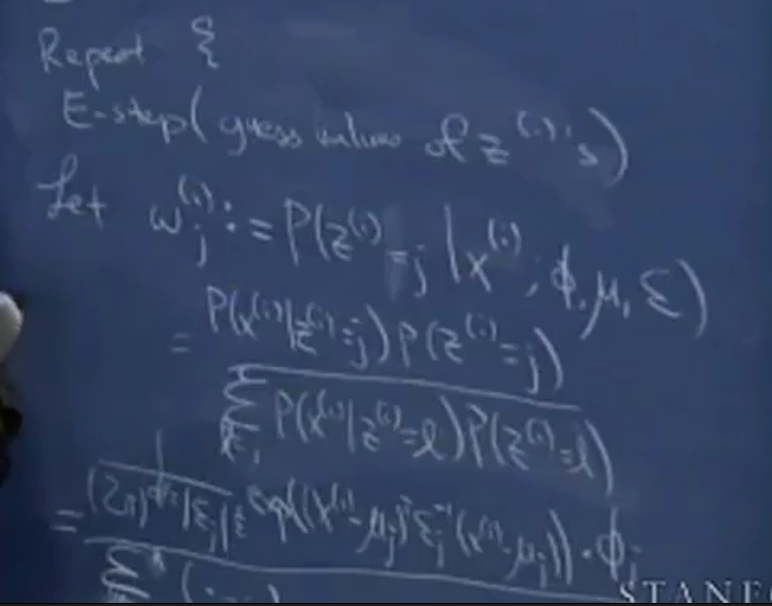 Repeat {
E-step (guess values of z^(i)'s)
Let w_j^(i) := P(z^(i) = j | x^(i); φ, μ, Σ)
= P(x^(i) | z^(i) = j) P(z^(i) = j)
Σ P(x^(i) | z^(i) = l) P(z^(i) = l)
= 1 / (2π)^{n/2} |Σ_j|^{1/2} exp((x^(i) - μ_j)^T Σ_j^{-1} (x^(i) - μ_j)) · φ_j
Σ (...)